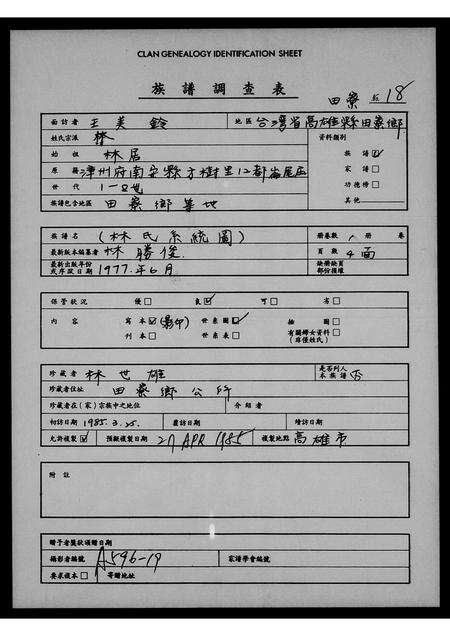 CLAN GENEALOGY IDENTIFICATION SHEET
族譜調查表
田寮 18
面訪者 王美鈴 地區 台灣省高雄縣田寮鄉
姓氏宗派 林 資料類別
始祖 林居 族譜☑
原籍 漳州府南安縣方樹里12都崙尾庄 家譜□
世代 1-8世 功德榜□
族譜包含地區 田寮鄉等地 其他
族譜名 (林氏系統圖) 冊卷數 1 冊 卷
最新版本編纂者 林勝俊 頁數 4面
最新出版年份或序跋日期 1977.年6月 缺冊缺頁部份損壞
保管狀況 優□ 良☑ 可□ 劣□
內容 寫本☑(影印) 世系圖☑ 插圖□
刊本□ 世系表□ 有關婦女資料□(非僅姓氏)
珍藏者 林世雄 是否列入本族譜 否
珍藏者住址 田寮鄉公所
珍藏者在(家)宗族中之地位 介紹者
初訪日期 1985.3.25. 覆訪日期 續訪日期
允許複製☑ 預擬複製日期 27 APR 1985 複製地點 高雄市
附註
贈予者獎狀頒贈日期
攝影者編號 A596-19 家譜學會編號
要求複本□ 寄贈地址